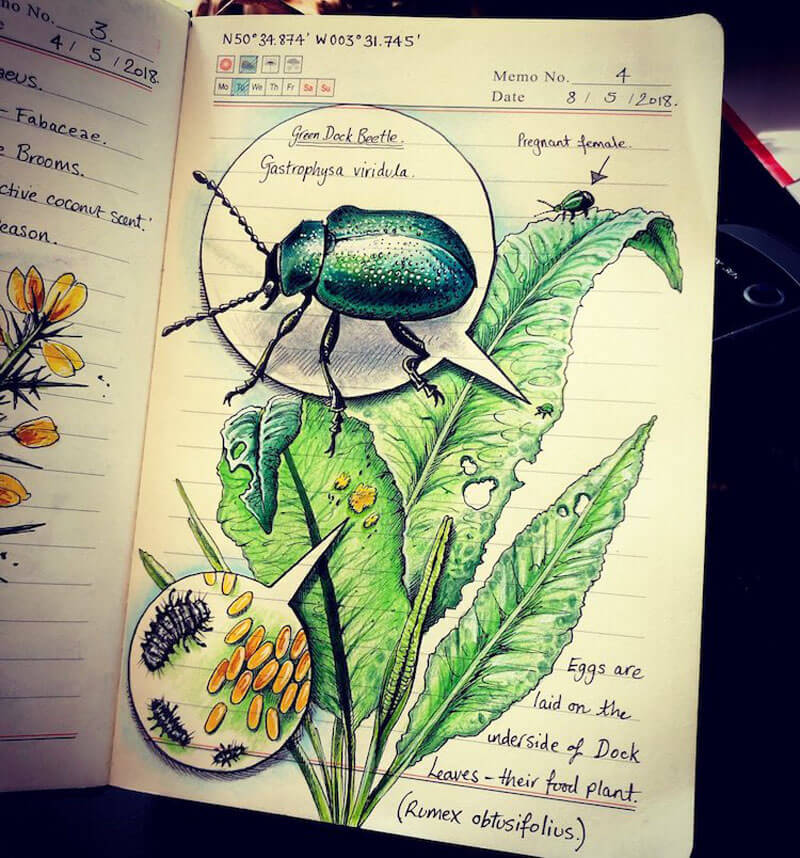 mo No. 3.
4 / 5 / 2018.
aeus.
- Fabaceae.
e Brooms.
ctive coconut scent.'
eason.
N50°34.874' W003°31.745'
Memo No. 4
Mo Tu We Th Fr Sa Su
Date 8 / 5 / 2018.
Green Dock Beetle.
Gastrophysa viridula.
Pregnant female.
Eggs are
laid on the
underside of Dock
Leaves - their food plant.
(Rumex obtusifolius.)